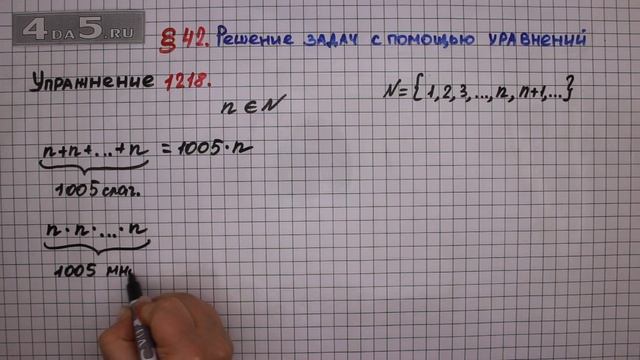 4DA5.RU
§ 42. Решение задач с помощью уравнений
Упражнение 1218.
n ∈ N
N = {1, 2, 3, ..., n, n+1, ...}
n+n+...+n = 1005·n
1005 слаг.
n·n·...·n
1005 мн